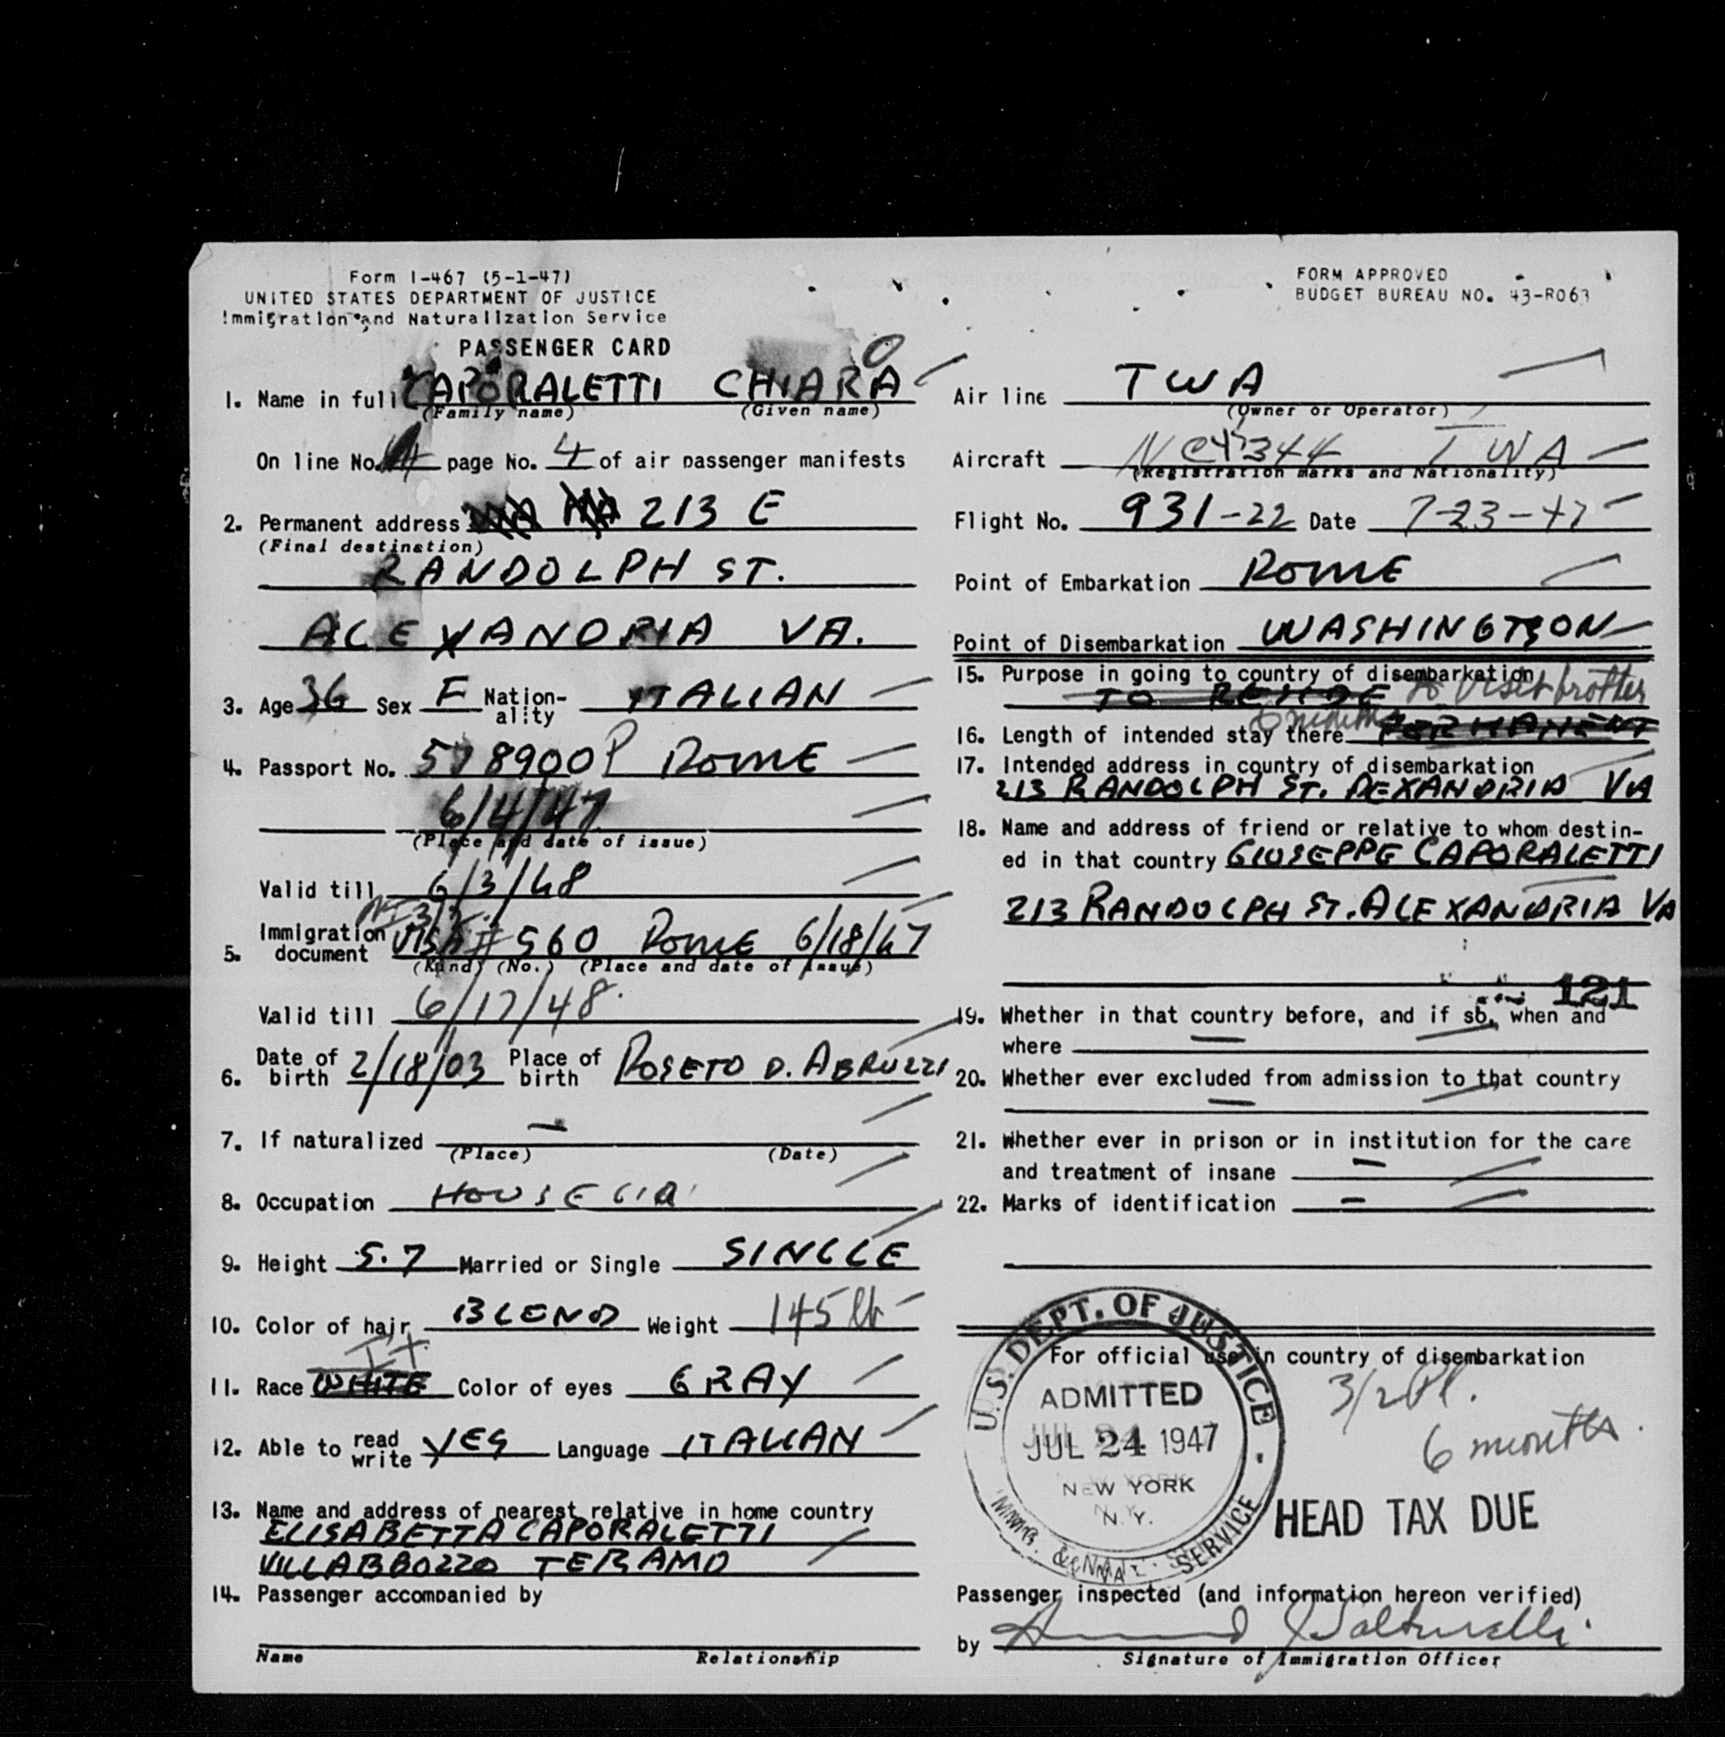 Form I-467 (5-1-47)
UNITED STATES DEPARTMENT OF JUSTICE
Immigration and Naturalization Service
PASSENGER CARD
FORM APPROVED
BUDGET BUREAU NO. 43-R063
1. Name in full CAPORALETTI CHIARA
(Family name) (Given name)
On line No. page No. 4 of air passenger manifests
2. Permanent address 213 E
(Final destination)
RANDOLPH ST.
ALEXANDRIA VA.
3. Age 36 Sex F Nation-ality ITALIAN
4. Passport No. 578900 P ROME
6/4/47
(Place and date of issue)
Valid till 6/3/48
5. Immigration document VISA # 560 ROME 6/18/47
(Kind) (No.) (Place and date of issue)
Valid till 6/17/48.
6. Date of birth 2/18/03 Place of birth ROSETO D. ABRUZZI
7. If naturalized —
(Place) (Date)
8. Occupation
9. Height 5.7 Married or Single SINGLE
10. Color of hair BLOND Weight 145 lb
It
11. Race WHITE Color of eyes GRAY
12. Able to read write YES Language ITALIAN
13. Name and address of nearest relative in home country
ELISABETTA CAPORALETTI
VILLABBOZZO TERAMO
14. Passenger accompanied by
Name Relationship
Air line TWA
(Owner or Operator)
Aircraft TWA
(Registration marks and Nationality)
Flight No. 931-22 Date 7-23-47
Point of Embarkation ROME
Point of Disembarkation WASHINGTON
15. Purpose in going to country of disembarkation
TO RESIDE to visit brother
6 months
16. Length of intended stay there PERMANENT
17. Intended address in country of disembarkation
213 RANDOLPH ST. ALEXANDRIA VA
18. Name and address of friend or relative to whom destin-
ed in that country GIUSEPPE CAPORALETTI
213 RANDOLPH ST. ALEXANDRIA VA
121
19. Whether in that country before, and if so, when and
where
20. Whether ever excluded from admission to that country
21. Whether ever in prison or in institution for the care
and treatment of insane —
22. Marks of identification —
For official use in country of disembarkation
U.S. DEPT. OF JUSTICE
ADMITTED
JUL 24 1947
NEW YORK
N.Y.
IMMIG. & NAT. SERVICE
6 months.
HEAD TAX DUE
Passenger inspected (and information hereon verified)
by
Signature of Immigration Officer